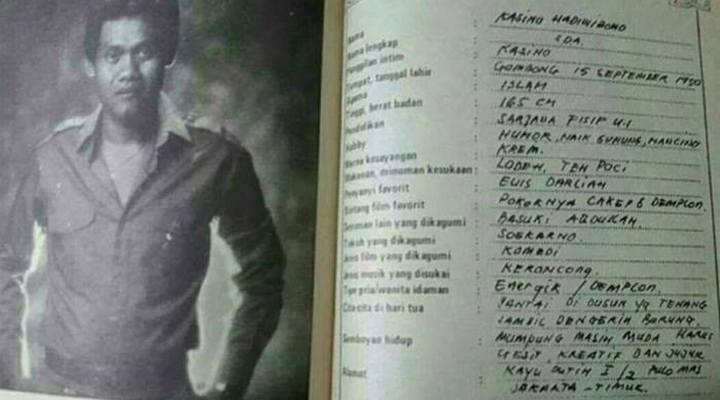 Nama : KASINO HADIWIBOWO
Nama lengkap : SDA.
Panggilan intim : KASINO
Tempat, tanggal lahir : GOMBONG 15 SEPTEMBER 1950
Agama : ISLAM
Tinggi, berat badan : 165 CM
Pendidikan : SARJANA FISIP U.I
Hobby : HUMOR, NAIK GUNUNG, MANCING
Warna kesayangan : KREM.
Makanan, minuman kesukaan : LODEH, TEH POCI
Penyanyi favorit : EUIS DARLIAH
Bintang film favorit : POKOKNYA CAKEP & DEMPLON.
Seniman lain yang dikagumi : BASUKI ABDULLAH.
Tokoh yang dikagumi : SOEKARNO.
Jenis film yang dikagumi : KOMEDI
Jenis musik yang disukai : KERONCONG.
Tipe pria/wanita idaman : Energik / DEMPLON.
Cita-cita di hari tua : SANTAI DI DUSUN yg TENANG
SAMBIL DENGERIN BURUNG.
Semboyan hidup : MUMPUNG MASIH MUDA HARUS
GESIT, KREATIF DAN JUJUR
Alamat : KAYU PUTIH I/2 PULO MAS
JAKARTA - TIMUR.